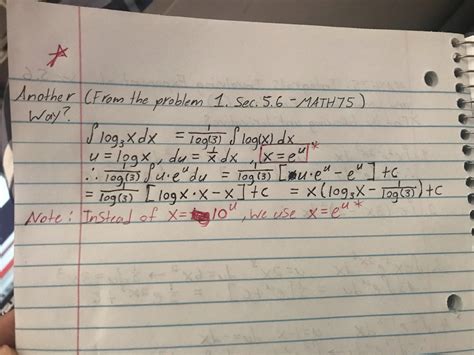 Another (From the problem 1. Sec. 5.6 - MATH75)
Way?
∫ log₃ x dx = 1/log(3) ∫ log(x) dx
u = log x, du = 1/x dx, x = e^u *
∴ 1/log(3) ∫ u·e^u du = 1/log(3) [u·e^u - e^u] + C
= 1/log(3) [log x · x - x] + C = x(log₃ x - 1/log(3)) + C
Note: Instead of x = 10^u, we use x = e^u *